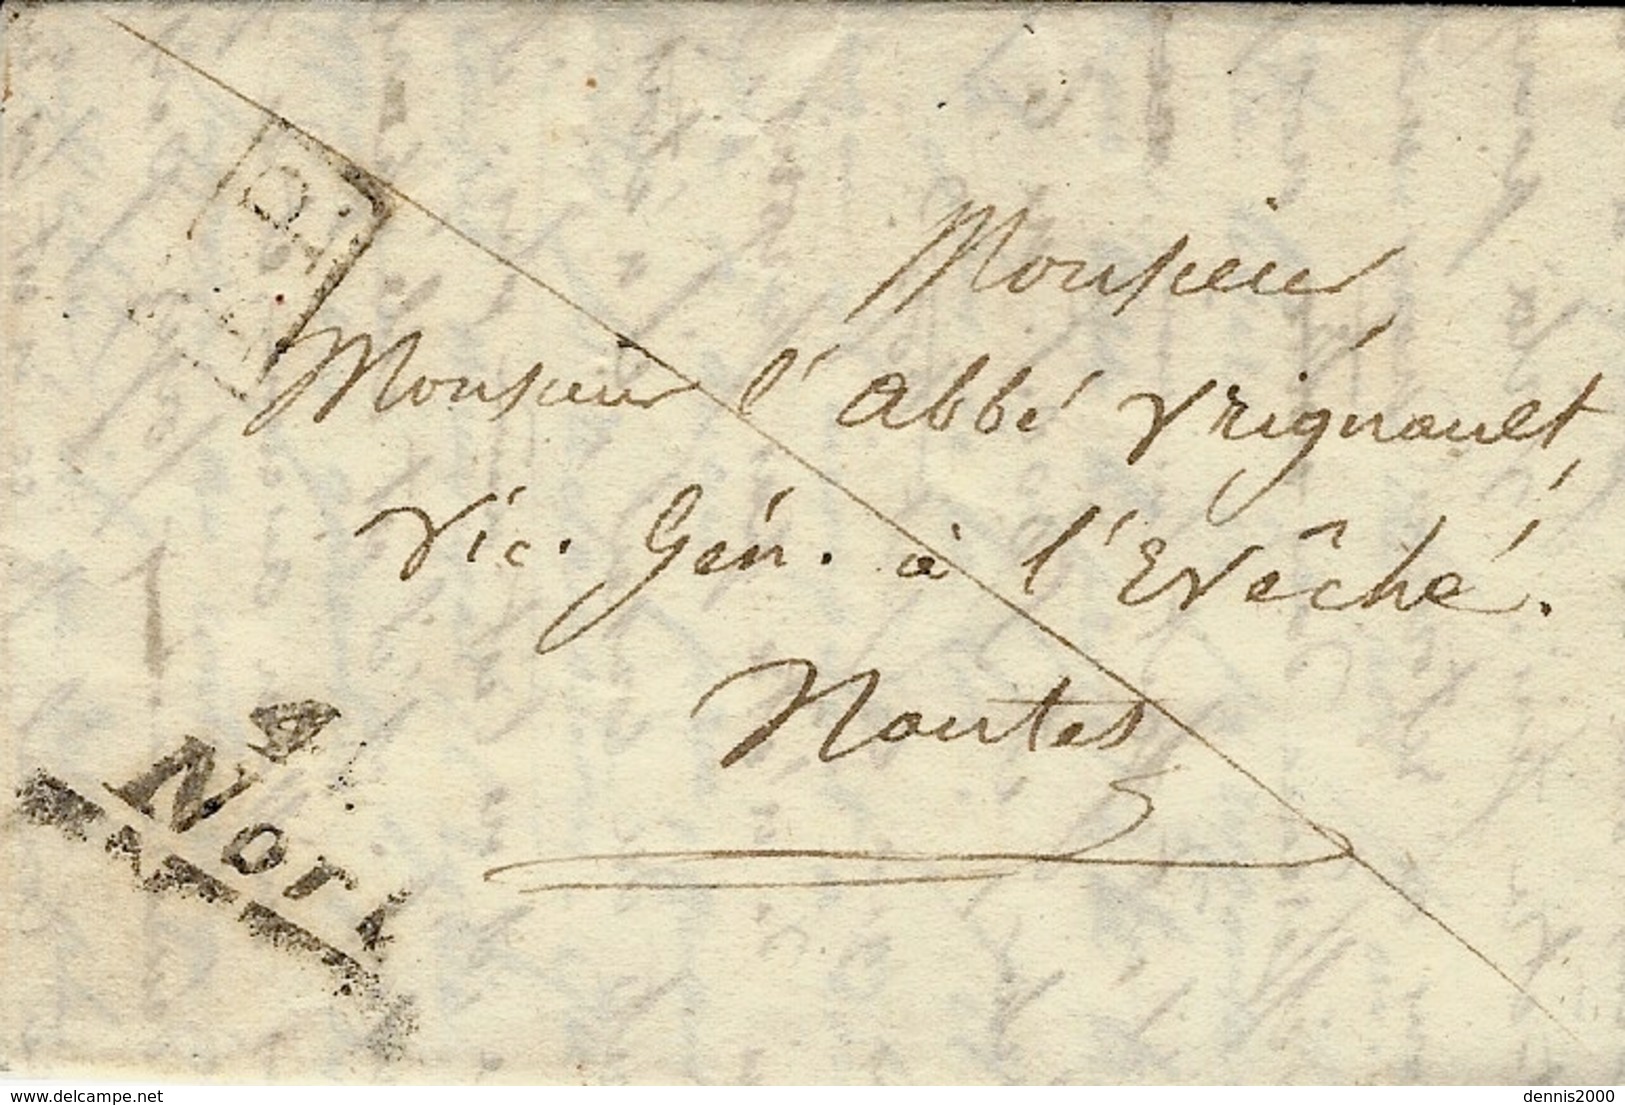 Monsieur
Monsieur l'abbé Vrignault,
Vic. Gén. à l'Evêché.
Nantes
Nort
www.delcampe.net
dennis2000